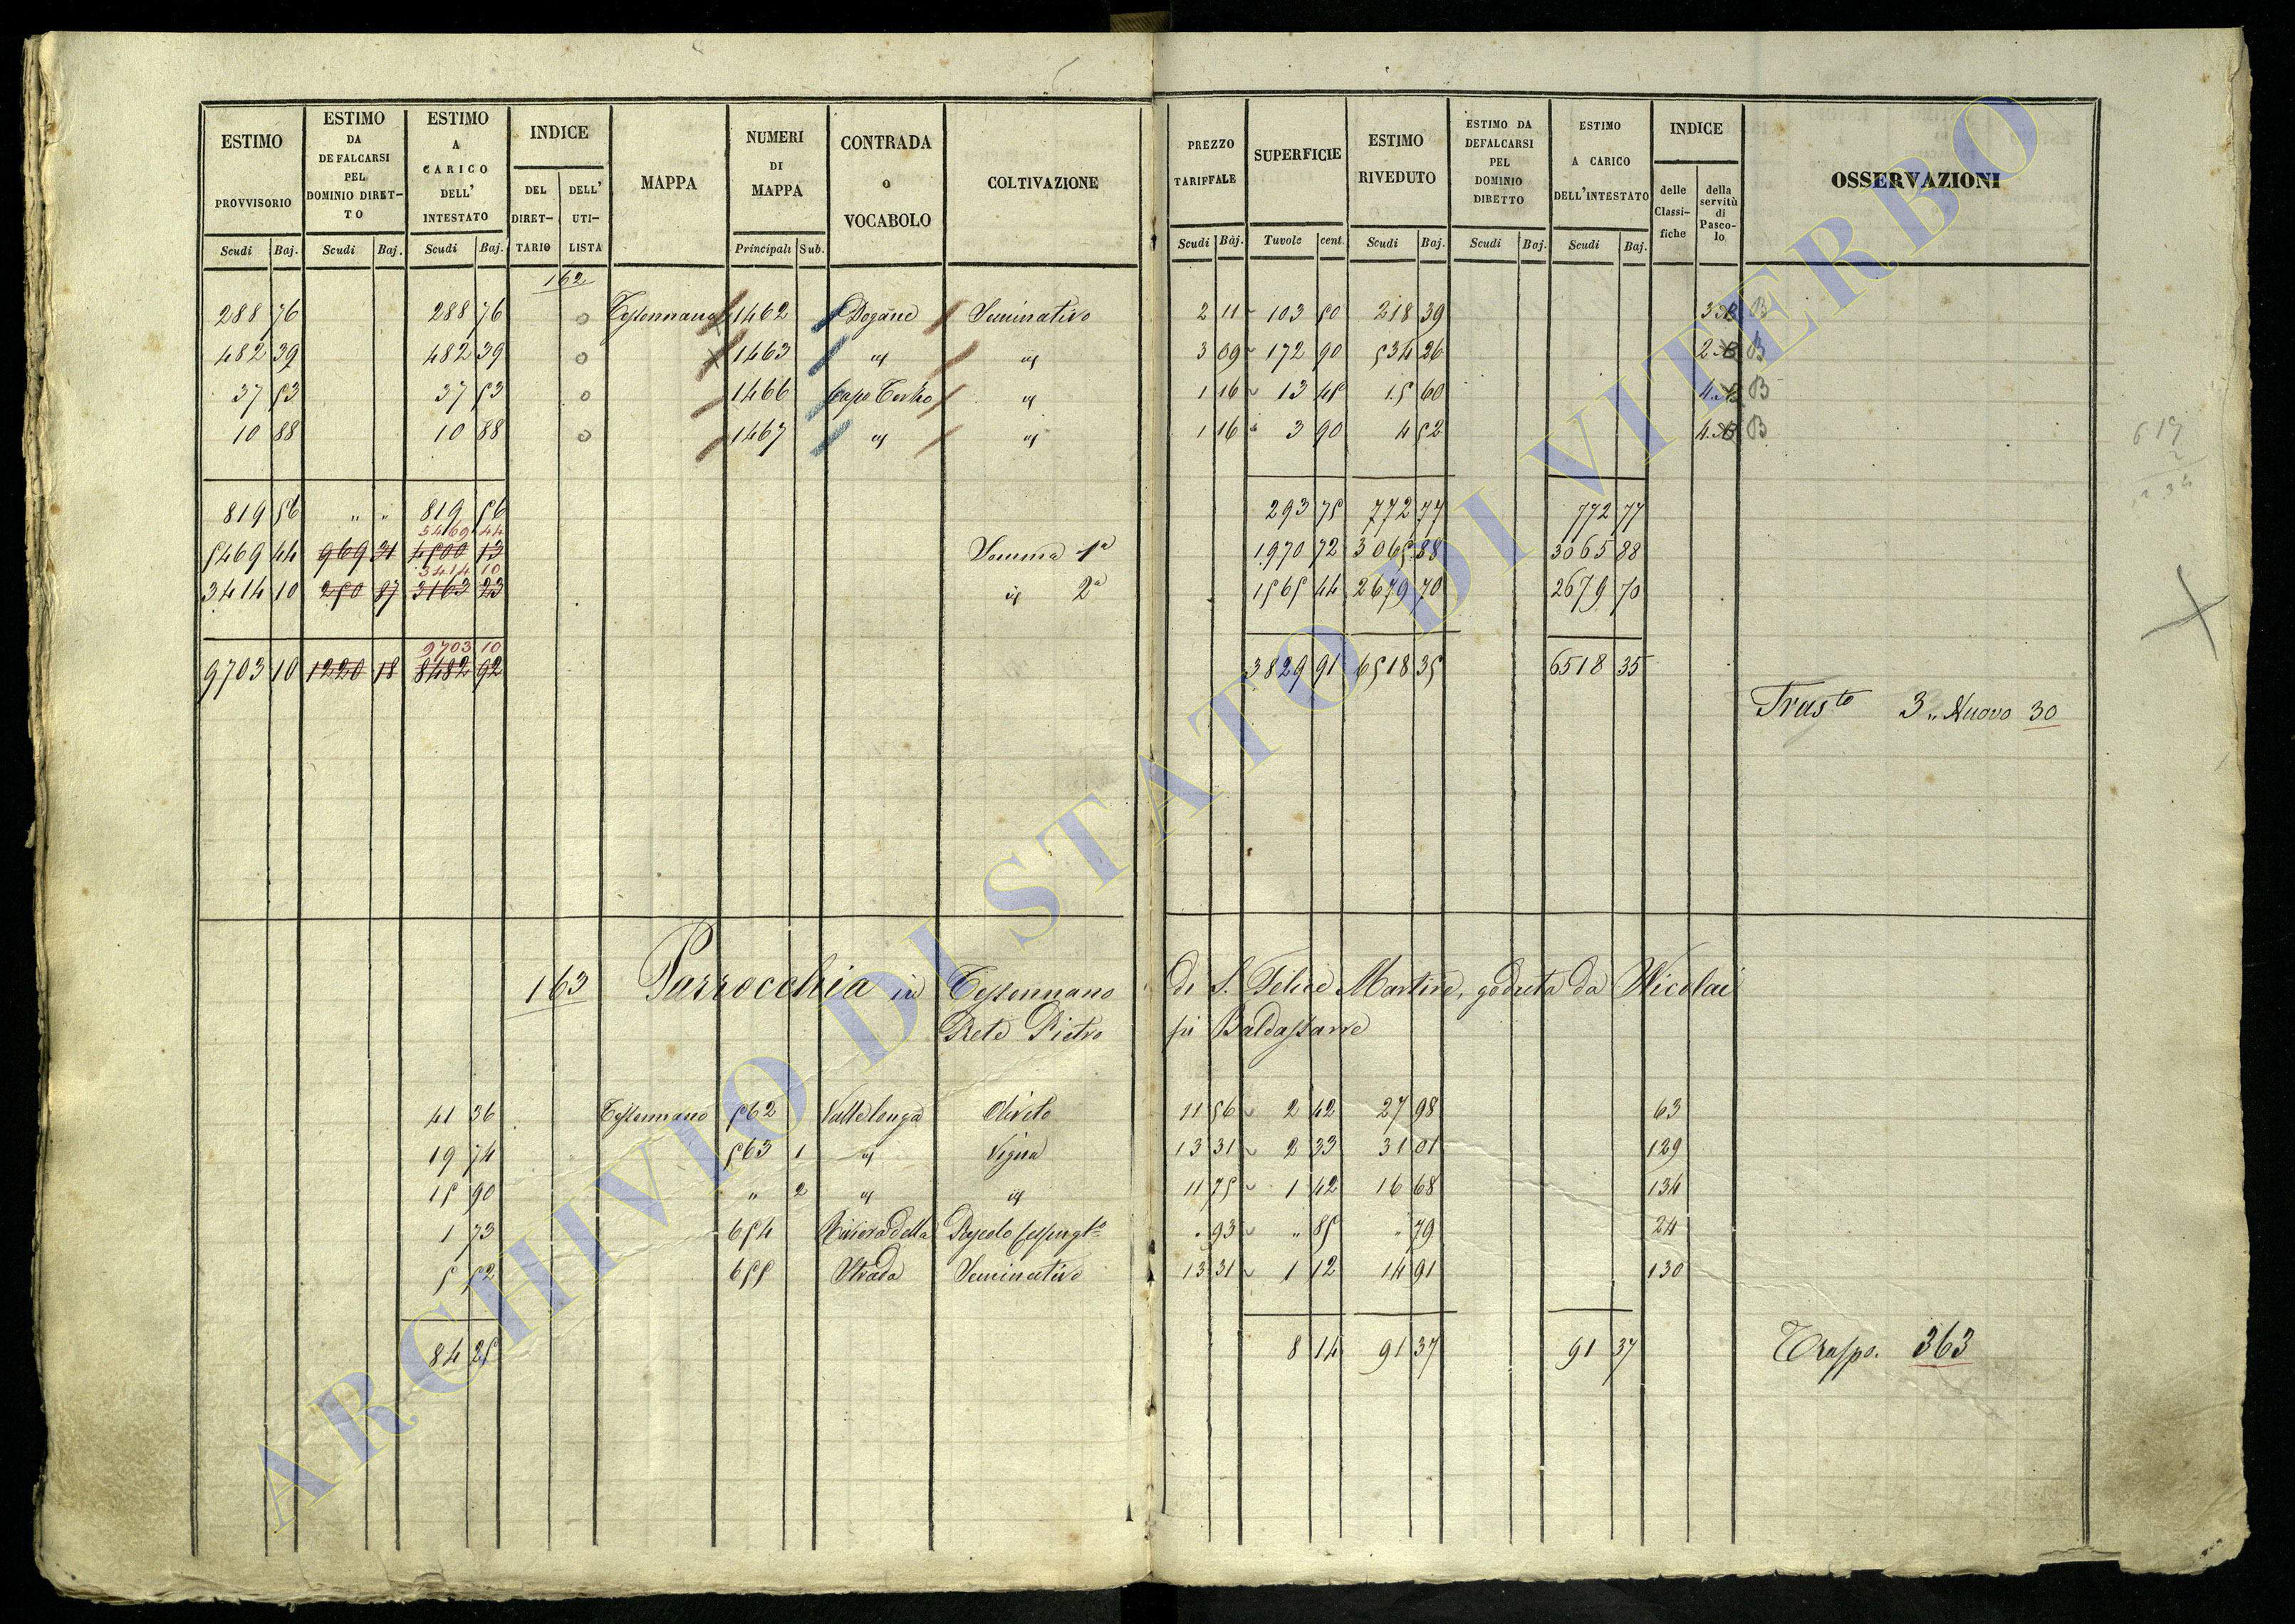 ESTIMO PROVVISORIO Scudi Baj.
ESTIMO DA DEFALCARSI PEL DOMINIO DIRET-TO Scudi Baj.
ESTIMO A CARICO DELL' INTESTATO Scudi Baj.
INDICE DEL DIRET-TARIO DELL' UTI-LISTA
MAPPA
NUMERI DI MAPPA Principali Sub.
CONTRADA o VOCABOLO
COLTIVAZIONE
PREZZO TARIFFALE Scudi Baj.
SUPERFICIE Tavole cent.
ESTIMO RIVEDUTO Scudi Baj.
ESTIMO DA DEFALCARSI PEL DOMINIO DIRETTO Scudi Baj.
ESTIMO A CARICO DELL'INTESTATO Scudi Baj.
INDICE delle Classi-fiche della servitù di Pasco-lo
OSSERVAZIONI
162
288 76 288 76 o Tessennano 1462 Dogane Seminativo 2 11 103 50 218 39 3 B B
482 39 482 39 o 1463 " " 3 09 172 90 534 26 2 B B
37 53 37 53 o 1466 Capo Terzo " 1 16 13 45 15 60 4 B B
10 88 10 88 o 1467 " " 1 16 3 90 4 52 4 B B
819 56 " " 819 56 293 75 772 77 772 77
5469 44
5469 44 969 31 4500 13 Somma 1a 1970 72 3065 88 3065 88
3414 10
3414 10 250 87 3163 23 " 2a 1565 44 2679 70 2679 70
9703 10
9703 10 1220 18 8482 92 3829 91 6518 35 6518 35
Trasto 3 " Nuovo 30
163 Parrocchia in Tessennano di S. Felice Martire, goduta da Nicolai
Prete Pietro fu Baldassarre
41 36 Tessennano 562 Valle longa Olivato 11 56 2 42 27 98 63
19 74 563 1 " Vigna 13 31 2 33 31 01 129
15 90 " 2 " " 11 75 1 42 16 68 134
1 73 654 della Pascolo cespugto " 93 " 85 " 79 24
5 52 655 Strada Seminativo 13 31 1 12 14 91 130
84 25 8 14 91 37 91 37
Traspo. 363
617
2
ARCHIVIO DI STATO DI VITERBO